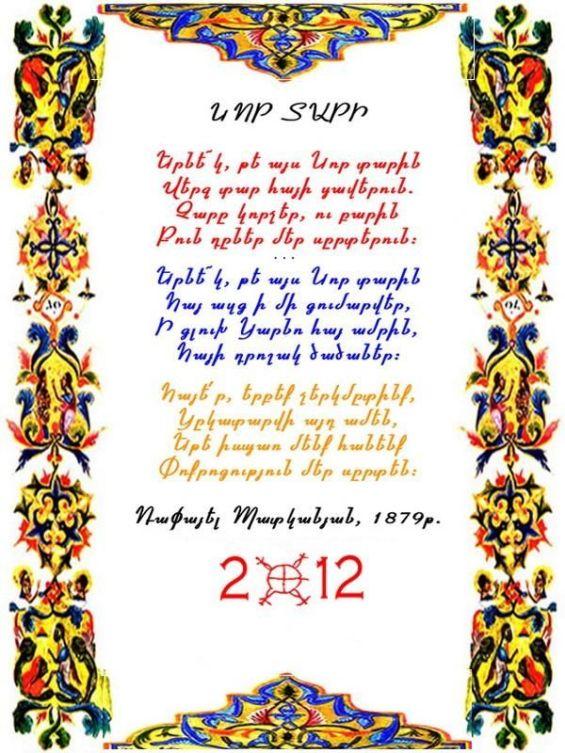 ՆՈՐ ՏԱՐԻ
Երնե՜կ, թե այս Նոր տարին
Վերջ տար հայի ցավերուն.
Չարը կորչեր, ու բարին
Բուն դըներ մեր սըրտերուն:
...
Երնե՜կ, թե այս Նոր տարին
Հայ ազգ ի մի գումարվեր,
Ի գլուխ Կարնո հայ ամրին,
Հայի դրոշակ ծածաներ:
Հայե՛ր, երբեք չերկմըտինք,
Կըկատարվի այդ ամեն,
Եթե իսպառ մենք հանենք
Փոքրոգություն մեր սըրտեն:
Ռափայել Պատկանյան, 1879թ.
2012